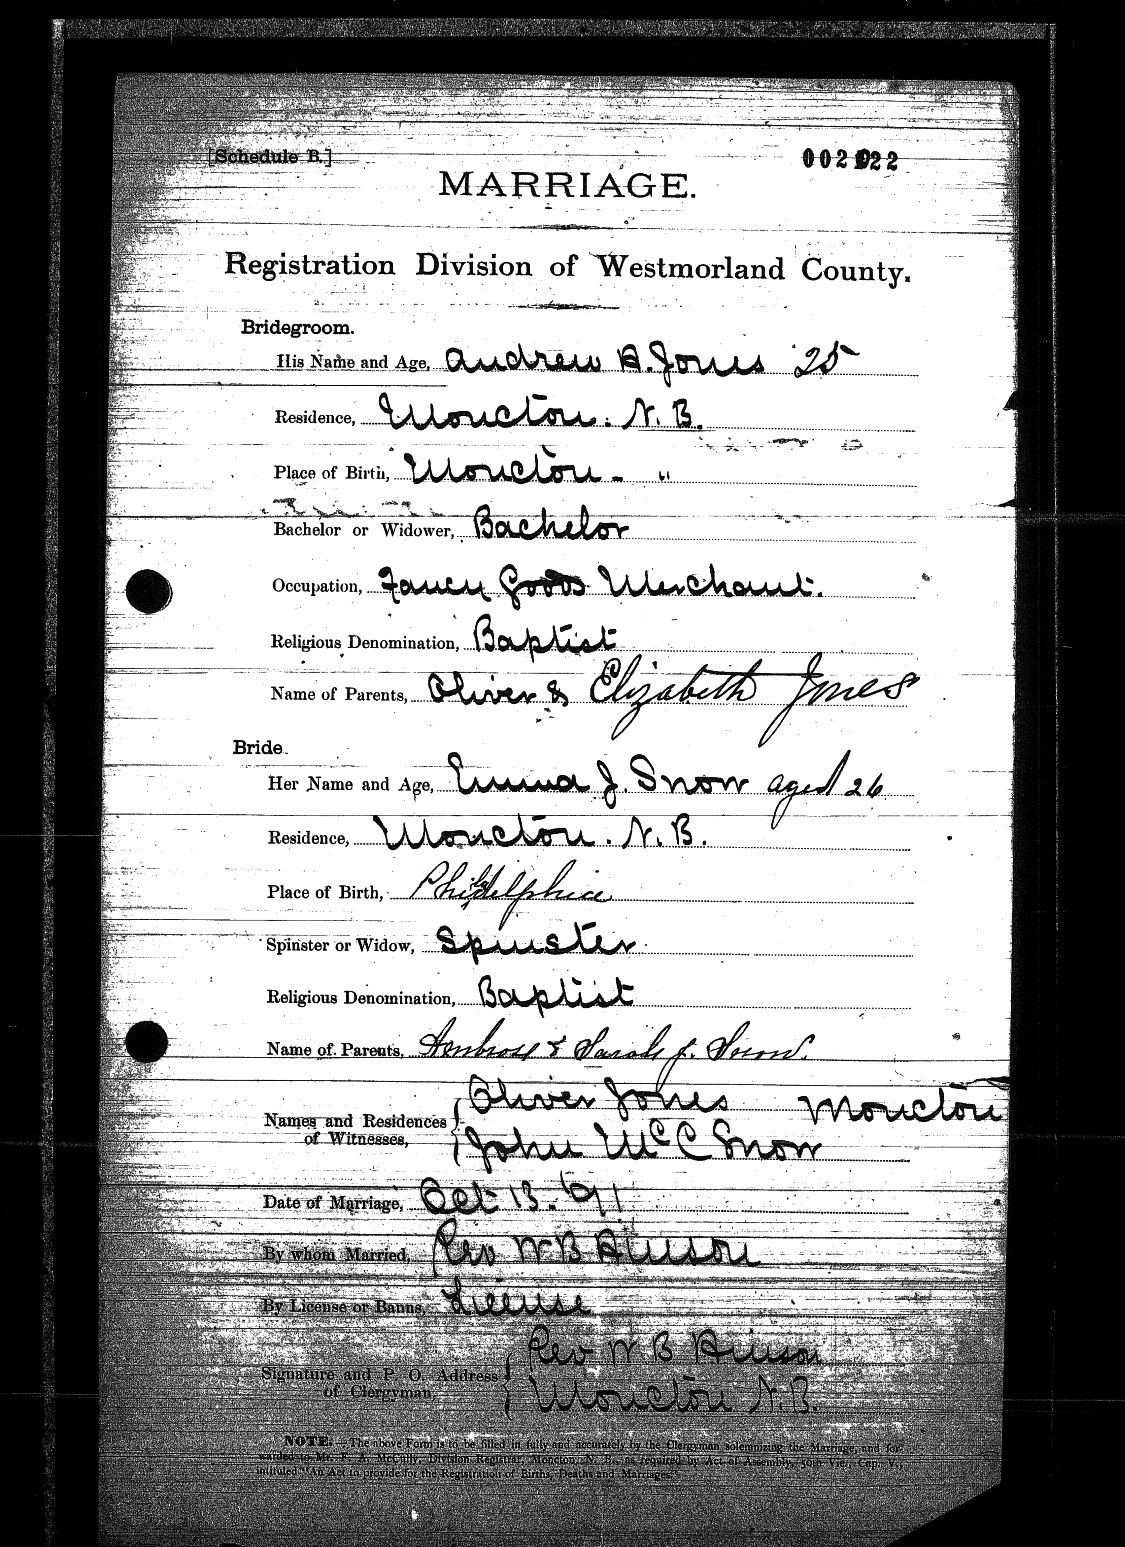 [Schedule B.]
002922
MARRIAGE.
Registration Division of Westmorland County.
Bridegroom.
His Name and Age, Andrew A. Jones 25
Residence, Moncton. N. B.
Place of Birth, Moncton - "
Bachelor or Widower, Bachelor
Occupation, Fancy Goods Merchant.
Religious Denomination, Baptist
Name of Parents, Oliver & Elizabeth Jones
Bride.
Her Name and Age, Emma J. Snow aged 26
Residence, Moncton. N. B.
Place of Birth, Philidelphia
Spinster or Widow, Spinster
Religious Denomination, Baptist
Name of Parents, Ambrose & Sarah J. Snow.
Names and Residences of Witnesses, Oliver Jones Moncton
John McC Snow
Date of Marriage, Oct 13. '91
By whom Married, Rev W B Hinson
By License or Banns, License
Signature and P. O. Address of Clergyman, Rev W B Hinson
Moncton N. B.
NOTE.—The above Form is to be filled in fully and accurately by the Clergyman solemnizing the Marriage, and for-
warded to Mr. F. A. McCully, Division Registrar, Moncton, N. B., as required by Act of Assembly, 50th Vic., Cap. V.,
intituled "An Act to provide for the Registration of Births, Deaths and Marriages."